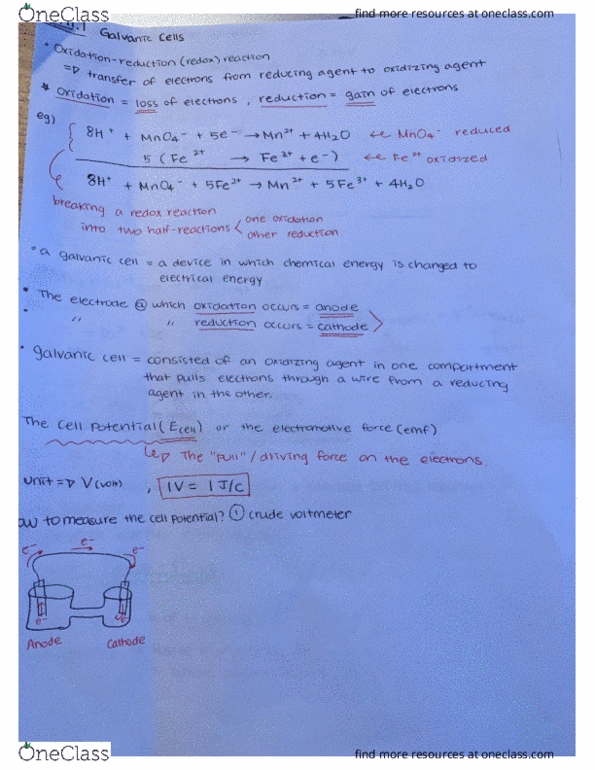 OneClass
find more resources at oneclass.com
.1 Galvanic Cells
• Oxidation-reduction (redox) reaction
=> transfer of electrons from reducing agent to oxidizing agent
* Oxidation = loss of electrons, reduction = gain of electrons
eg)
8H⁺ + MnO₄⁻ + 5e⁻ → Mn²⁺ + 4H₂O ← MnO₄⁻ reduced
5 (Fe²⁺ → Fe³⁺ + e⁻) ← Fe²⁺ oxidized
8H⁺ + MnO₄⁻ + 5Fe²⁺ → Mn²⁺ + 5Fe³⁺ + 4H₂O
breaking a redox reaction
into two half-reactions < one oxidation
other reduction
• a galvanic cell = a device in which chemical energy is changed to
electrical energy
• The electrode @ which oxidation occurs = anode
• " " reduction occurs = cathode
• galvanic cell = consisted of an oxidizing agent in one compartment
that pulls electrons through a wire from a reducing
agent in the other.
The Cell Potential (Ecell) or the electromotive force (emf)
↳ The "pull" / driving force on the electrons.
unit => V (volt) , 1V = 1 J/C
ow to measure the cell potential? ① crude voltmeter
e⁻ e⁻ e⁻
e⁻ e⁻
Anode Cathode
OneClass
find more resources at oneclass.com